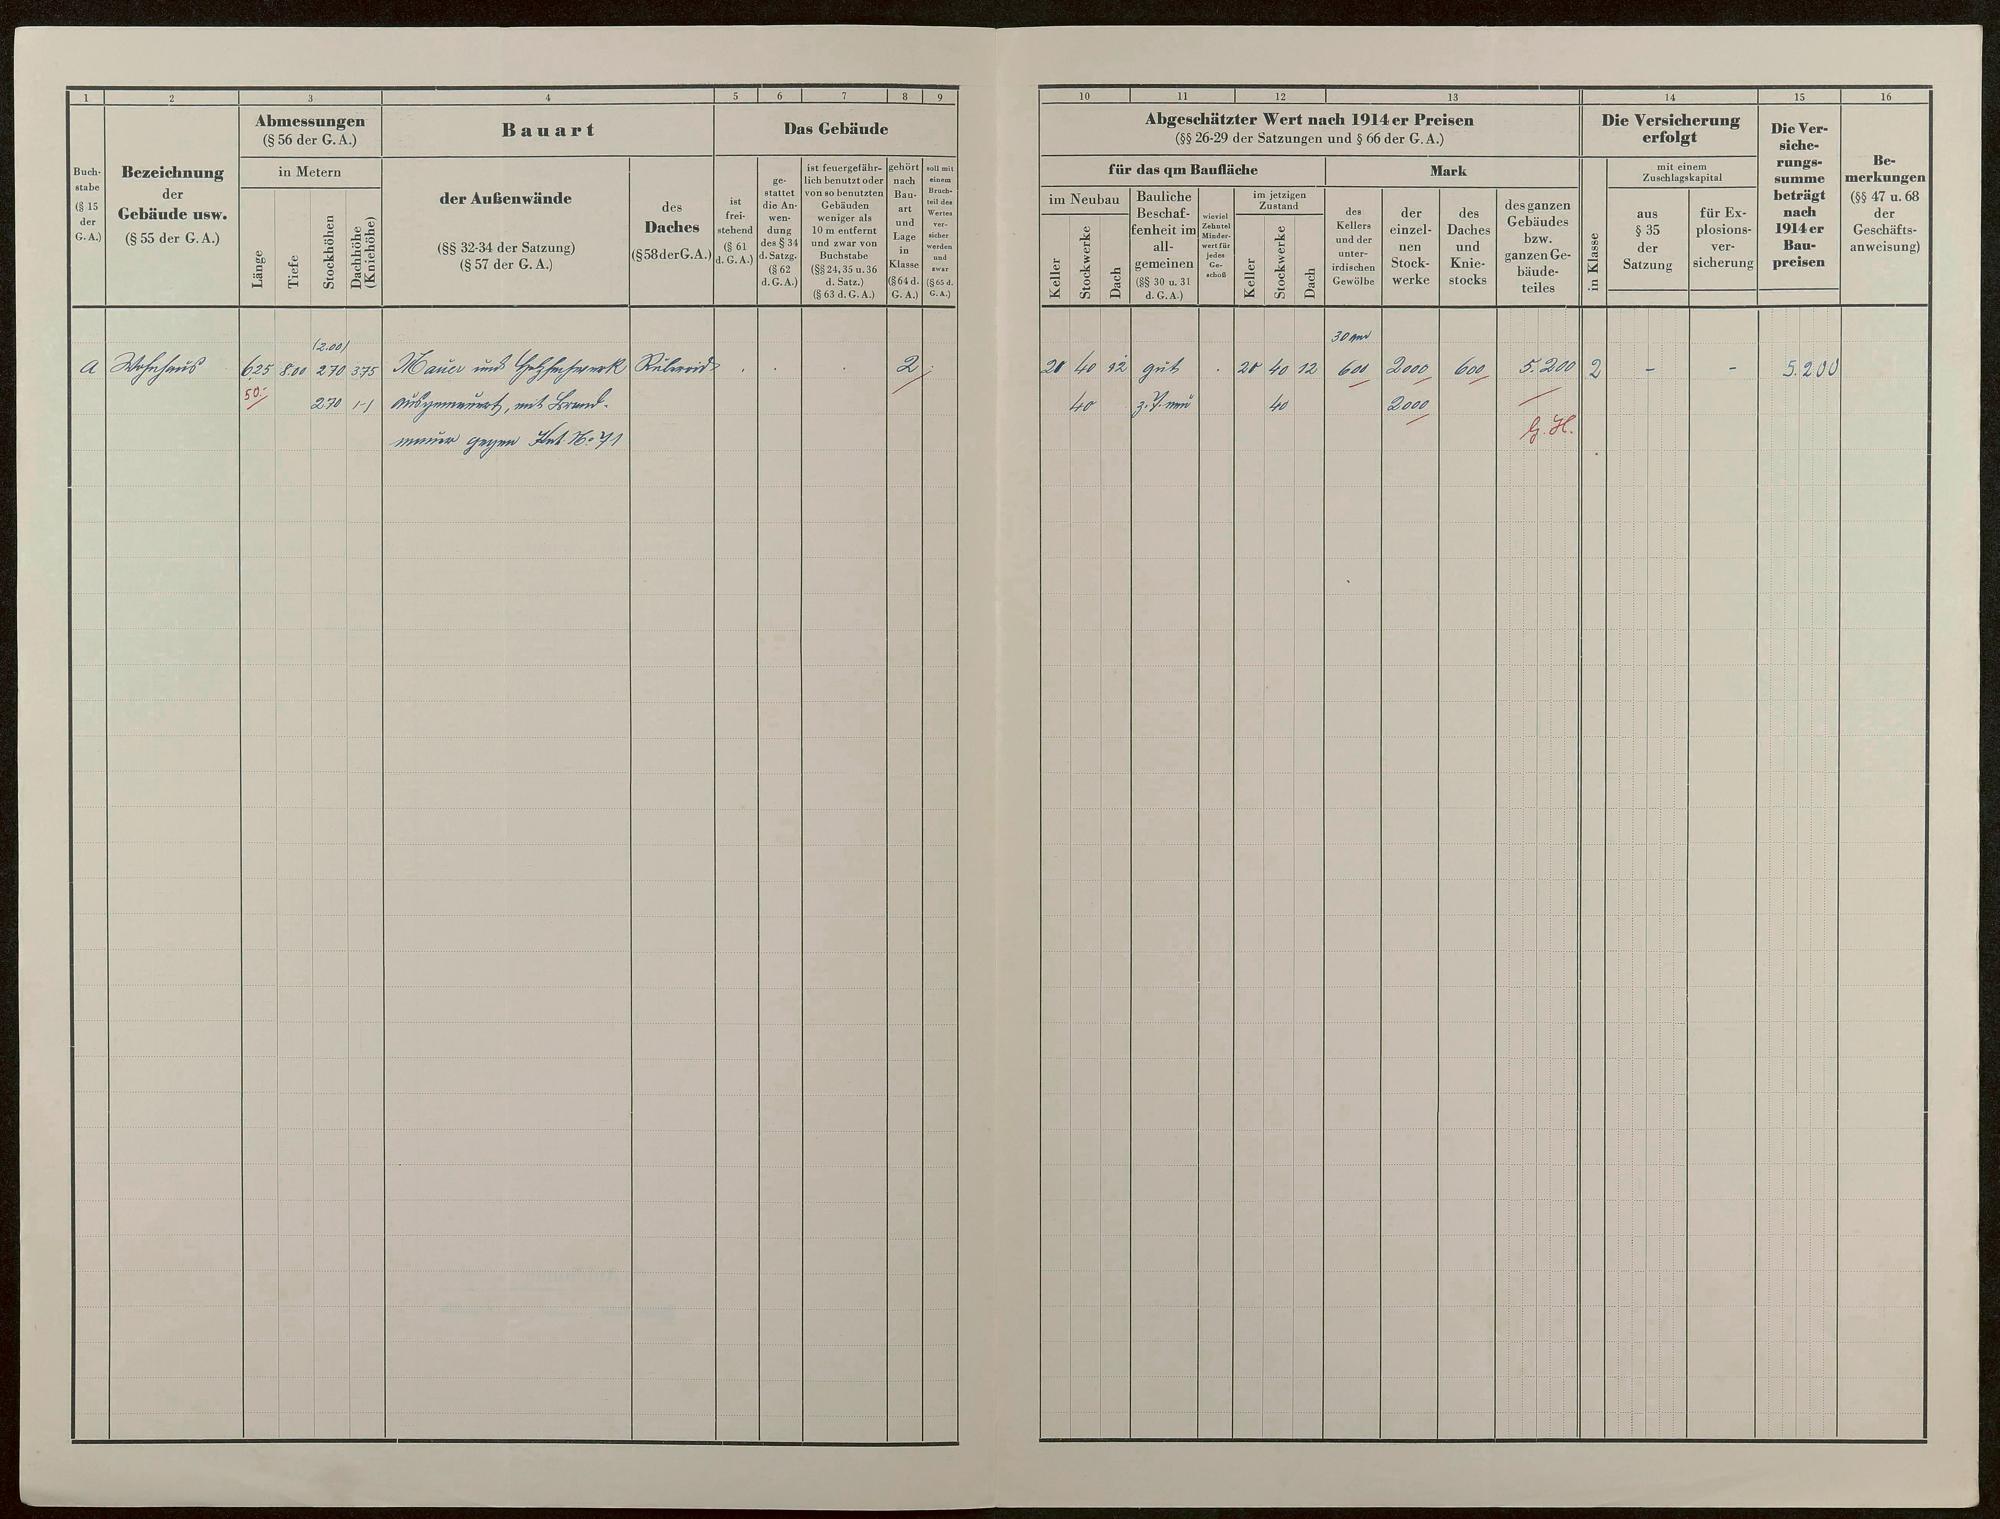 1 2 3 4 5 6 7 8 9
Buch-
stabe
(§ 15
der
G. A.)
Bezeichnung
der
Gebäude usw.
(§ 55 der G. A.)
Abmessungen
(§ 56 der G. A.)
in Metern
Länge
Tiefe
Stockhöhen
Dachhöhe
(Kniehöhe)
Bauart
der Außenwände
(§§ 32-34 der Satzung)
(§ 57 der G. A.)
des
Daches
(§ 58 der G. A.)
Das Gebäude
ist
frei-
stehend
(§ 61
d. G. A.)
ge-
stattet
die An-
wen-
dung
des § 34
d. Satzg.
(§ 62
d. G. A.)
ist feuergefähr-
lich benutzt oder
von so benutzten
Gebäuden
weniger als
10 m entfernt
und zwar von
Buchstabe
(§§ 24, 35 u. 36
d. Satz.)
(§ 63 d. G. A.)
gehört
nach
Bau-
art
und
Lage
in
Klasse
(§ 64 d.
G. A.)
soll mit
einem
Bruch-
teil des
Wertes
ver-
sichert
werden
und
zwar
(§ 65 d.
G. A.)
(2.00)
A Wohnhaus 6.25 8.00 2.70 3.75 Mauer und Holzfachwerk 2
50.- 2.70 1-1 ausgemauert, mit Brand-
mauer gegen Kat. No. 71
10 11 12 13 14 15 16
Abgeschätzter Wert nach 1914 er Preisen
(§§ 26-29 der Satzungen und § 66 der G. A.)
für das qm Baufläche
Mark
im Neubau
Keller
Stockwerke
Dach
Bauliche
Beschaf-
fenheit im
all-
gemeinen
(§§ 30 u. 31
d. G. A.)
wieviel
Zehntel
Minder-
wert für
jedes
Ge-
schoß
im jetzigen
Zustand
Keller
Stockwerke
Dach
des
Kellers
und der
unter-
irdischen
Gewölbe
der
einzel-
nen
Stock-
werke
des
Daches
und
Knie-
stocks
des ganzen
Gebäudes
bzw.
ganzen Ge-
bäude-
teiles
Die Versicherung
erfolgt
in Klasse
mit einem
Zuschlagskapital
aus
§ 35
der
Satzung
für Ex-
plosions-
ver-
sicherung
Die Ver-
siche-
rungs-
summe
beträgt
nach
1914 er
Bau-
preisen
Be-
merkungen
(§§ 47 u. 68
der
Geschäfts-
anweisung)
30 qm
20 40 12 gut 20 40 12 600 2000 600 5.200 2 - - 5.200
40 z. T. neu 40 2000
G. H.